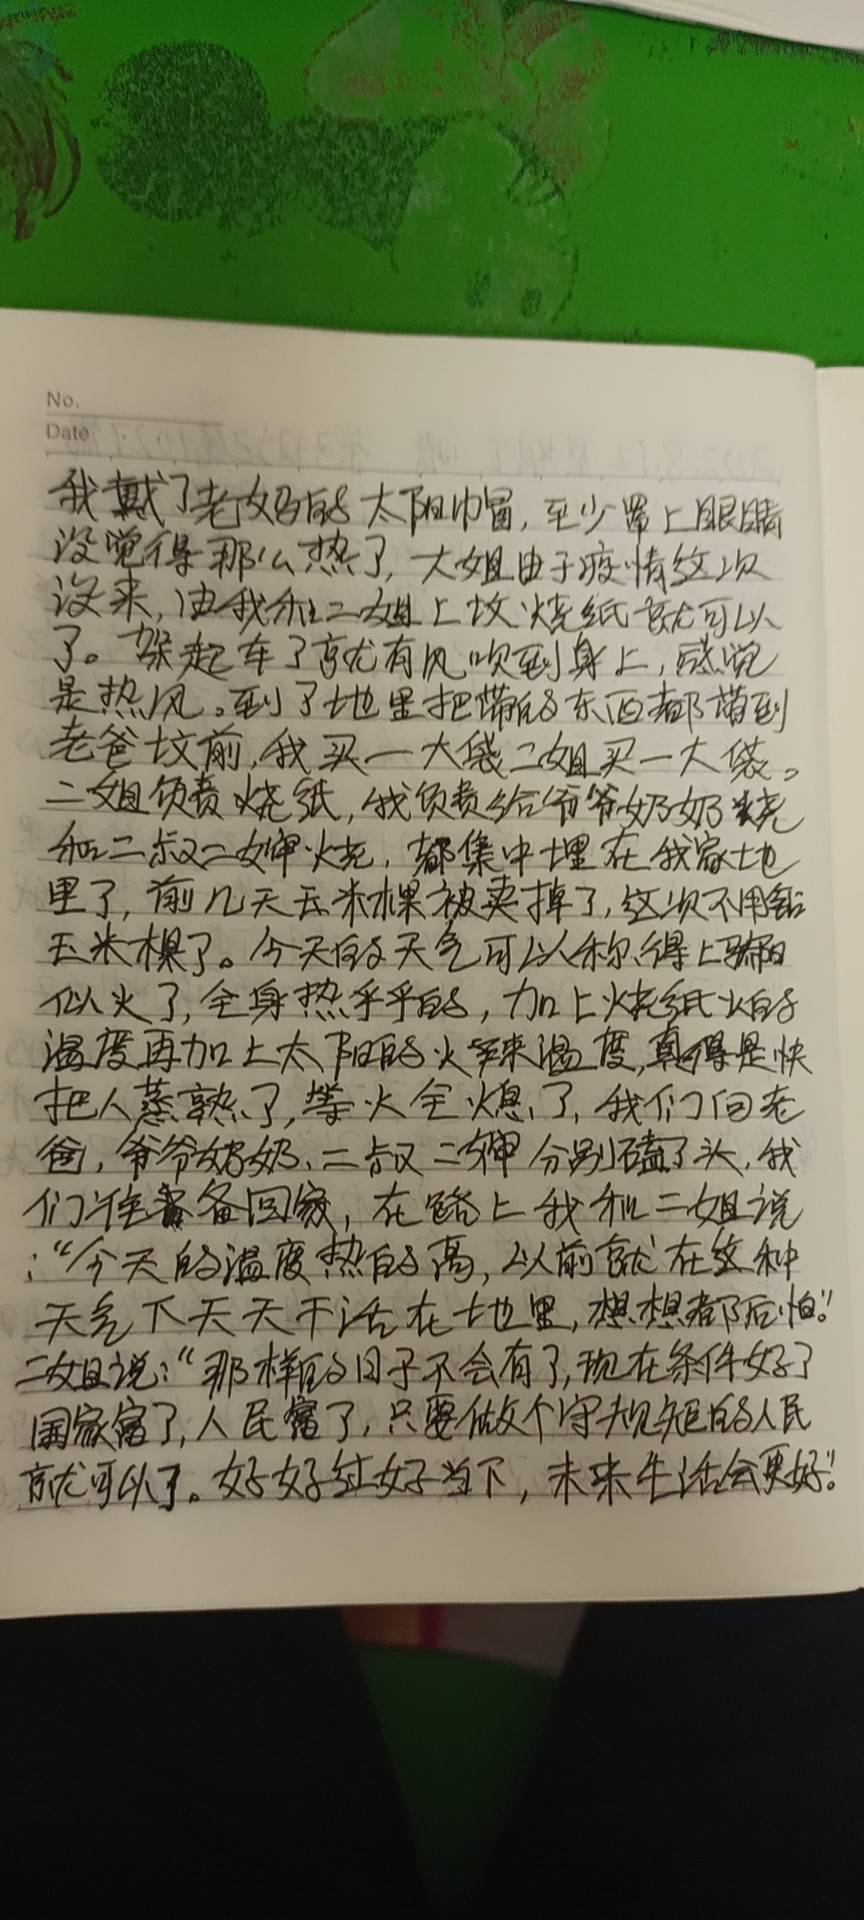 No.
Date
我戴了老妈的太阳帽，至少罩上眼睛
没觉得那么热了，大姐由于疫情这次
没来，由我和二姐上坟烧纸就可以
了。驾起车了就有风吹到身上，感觉
是热风。到了地里把带的东西都带到
老爸坟前，我买一大袋二姐买一大袋。
二姐负责烧纸，我负责给爷爷奶奶烧
和二叔二婶烧，都集中埋在我家地
里了，前几天玉米棵被卖掉了，这次不用钻
玉米棵了。今天的天气可以称得上骄阳
似火了，全身热乎乎的，加上烧纸火的
温度再加上太阳的火辣温度，真得是快
把人蒸熟了，等火全熄了，我们向老
爸，爷爷奶奶、二叔二婶分别磕了头，我
们准备回家，在路上我和二姐说
：“今天的温度热的高，以前就在这种
天气下天天干活在地里，想想都后怕。”
二姐说：“那样的日子不会有了，现在条件好了
国家富了，人民富了，只要做个守规矩的人民
就可以了。好好过好当下，未来生活会更好。”